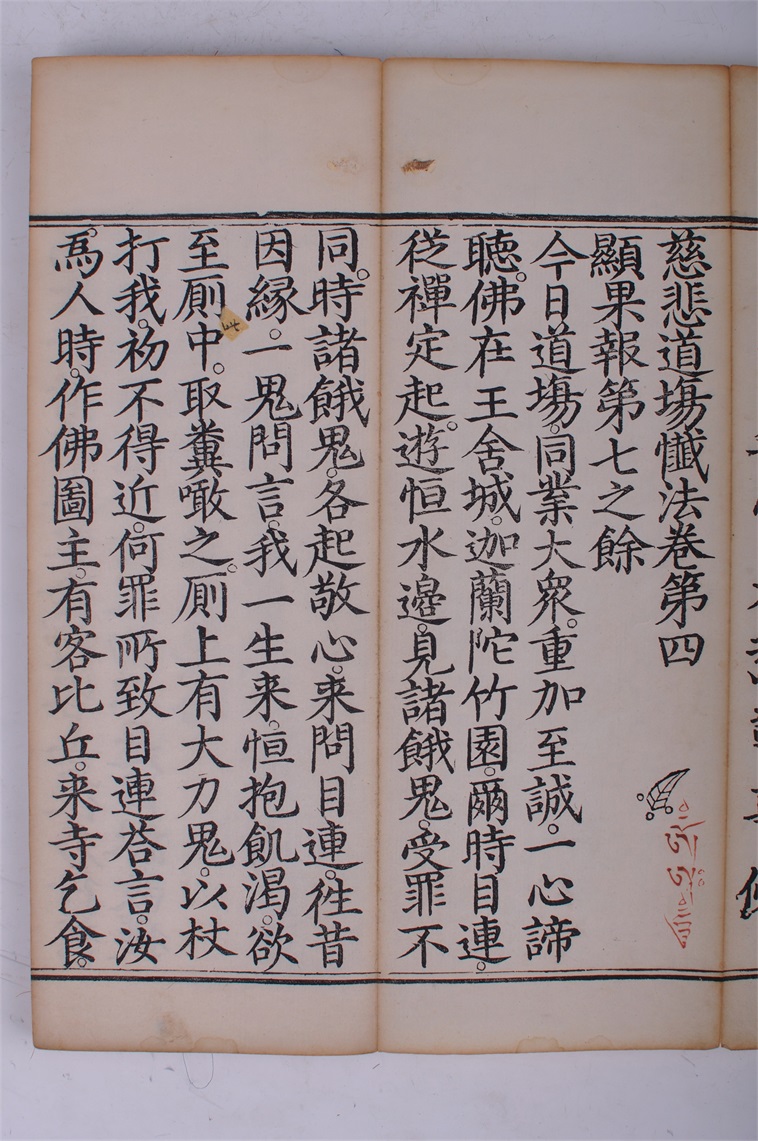 慈悲道場懺法卷第四
顯果報第七之餘
今日道場。同業大衆。重加至誠。一心諦
聽。佛在王舍城。迦蘭陀竹園。爾時目連。
從禪定起。遊恒水邊。見諸餓鬼。受罪不
同。時諸餓鬼。各起敬心。来問目連。徃昔
因縁。一鬼問言。我一生来。恒抱飢渴。欲
至厠中。取糞噉之。厠上有大力鬼。以杖
打我。初不得近。何罪所致目連荅言。汝
爲人時。作佛圖主。有客比丘。来寺乞食。